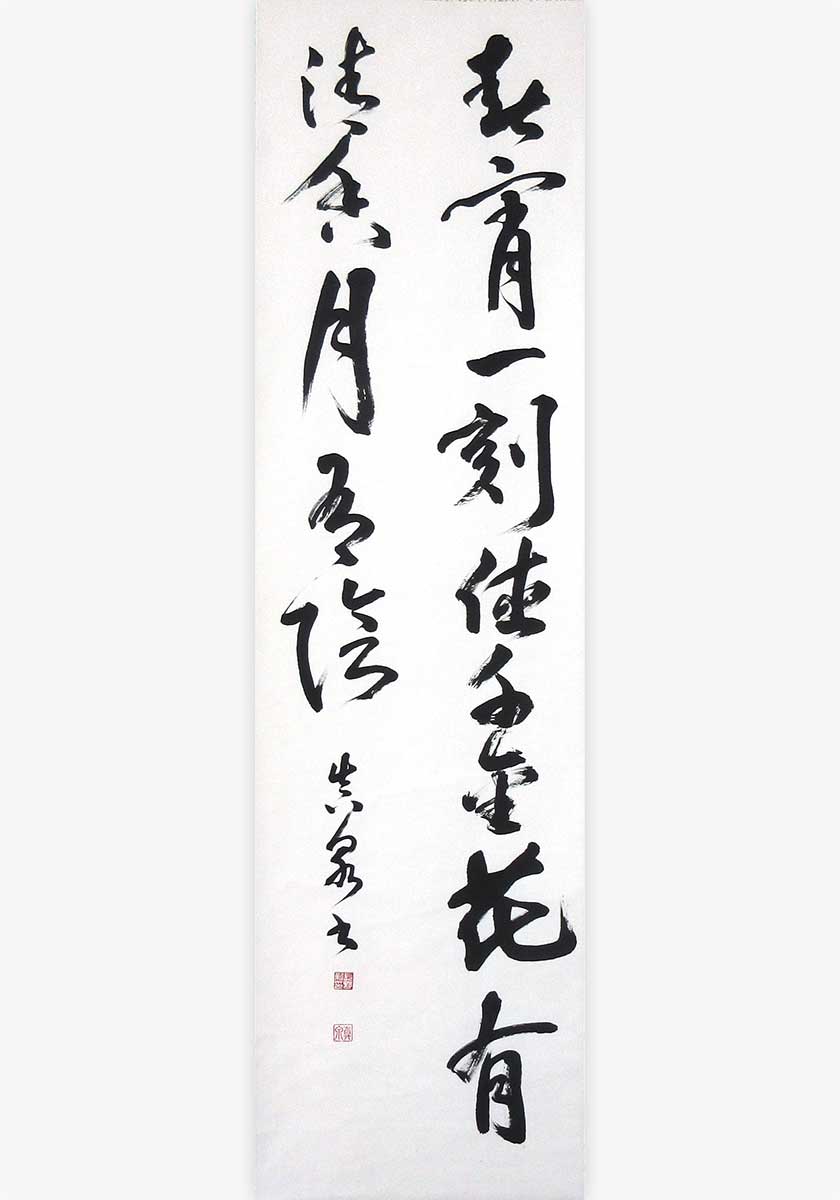 春宵一刻値千金花有
清香月有陰
真泉書